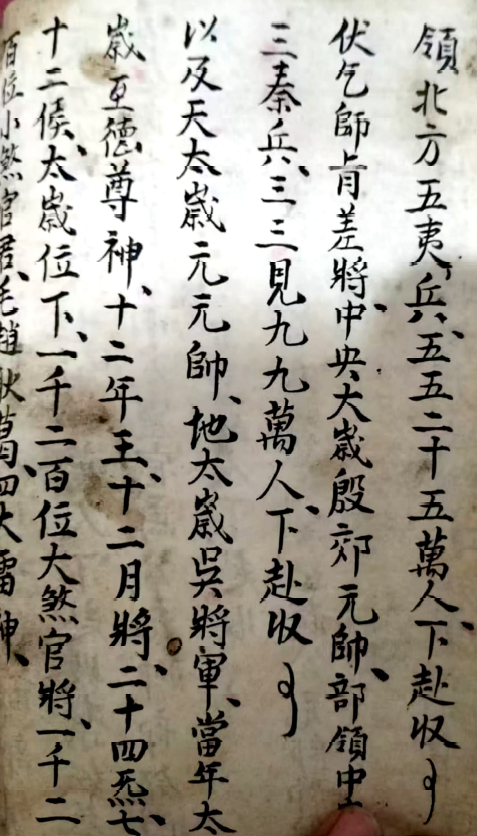 領北方五夷兵、五五二十五萬人、下赴収
伏乞師旨差將、中央大歳殷郊元帥、部領中
三秦兵、三三見九九萬人、下赴収
以及天太歳元元帥、地太歳吳將軍、當年太
歳至德尊神、十二年王、十二月將、二十四炁七、
十二候、太歳位下、一千二百位大煞官將、一千二
百位小煞官君、毛趙耿葛四大雷神、